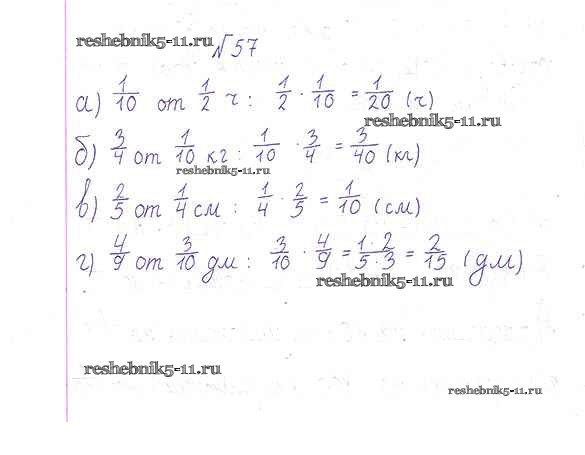 reshebnik5-11.ru
№57
а) 1/10 от 1/2 ч : 1/2 · 1/10 = 1/20 (ч)
reshebnik5-11.ru
б) 3/4 от 1/10 кг : 1/10 · 3/4 = 3/40 (кг)
reshebnik5-11.ru
в) 2/5 от 1/4 см : 1/4 · 2/5 = 1/10 (см)
г) 4/9 от 3/10 дм : 3/10 · 4/9 = 1·2/5·3 = 2/15 (дм)
reshebnik5-11.ru
reshebnik5-11.ru
reshebnik5-11.ru